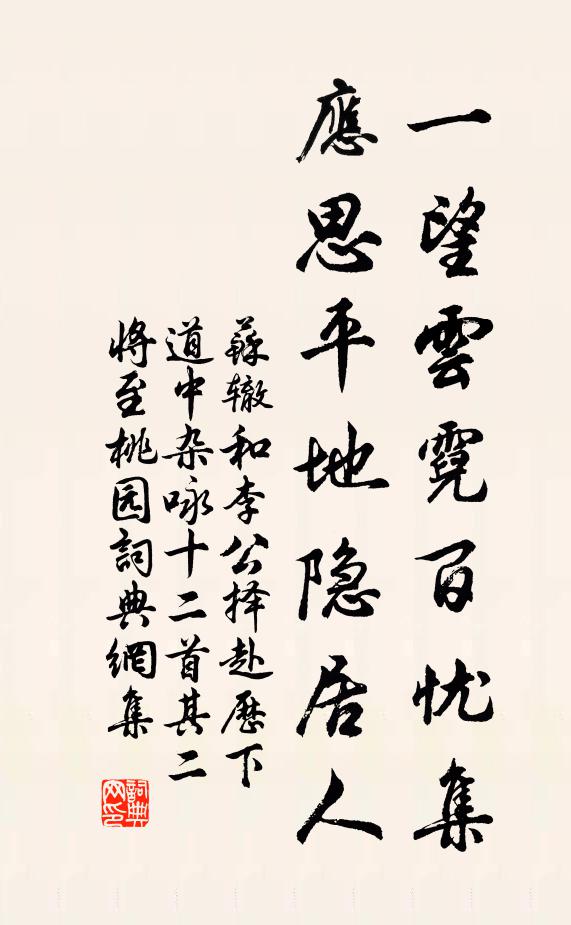 一望雲霓百忧集
應思平地隐居人
蘇辙和李公择赴歷下
道中杂咏十二首其二
將至桃园詞典網集
詞典网印